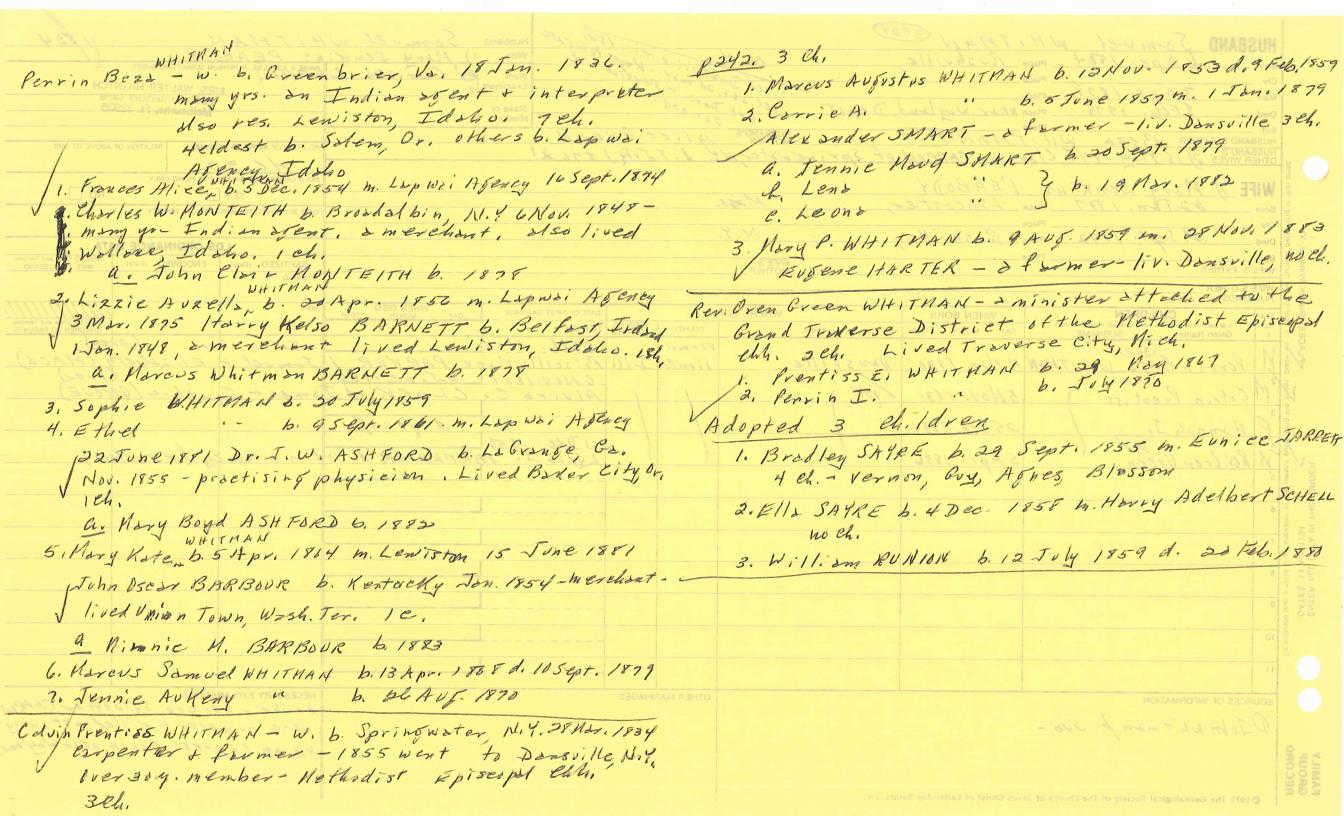 WHITMAN
Perrin Beza - w. b. Greenbrier, Va. 18 Jan. 1836.
many yrs. an Indian agent & interpreter
also res. Lewiston, Idaho. 7ch.
4 eldest b. Salem, Or. others b. Lapwai
Agency, Idaho
1. Frances Alice WHITMAN, b. 3 Dec. 1854 m. Lapwai Agency 16 Sept. 1874
Charles W. MONTEITH b. Broadalbin, N.Y. 6 Nov. 1848 -
many yr. Indian agent, a merchant, also lived
Wallace, Idaho. 1 ch.
a. John Clair MONTEITH b. 1878
2. Lizzie Auzella WHITMAN, b. 20 Apr. 1856 m. Lapwai Agency
3 Mar. 1875 Harry Kelso BARNETT b. Belfast, Ireland
1 Jan. 1848, a merchant lived Lewiston, Idaho. 1ch.
a. Marcus Whitman BARNETT b. 1878
3. Sophie WHITMAN b. 20 July 1859
4. Ethel " b. 9 Sept. 1861 m. Lapwai Agency
22 June 1881 Dr. J. W. ASHFORD b. La Grange, Ga.
Nov. 1855 - practising physician. Lived Baker City, Or.
1ch.
a. Mary Boyd ASHFORD b. 1882
5. Mary Kate WHITMAN, b. 5 Apr. 1864 m. Lewiston 15 June 1881
John Oscar BARBOUR b. Kentucky Jan. 1854 - merchant -
lived Union Town, Wash. Ter. 1 c.
a Minnie M. BARBOUR b. 1883
6. Marcus Samuel WHITMAN b. 13 Apr. 1868 d. 10 Sept. 1879
7. Jennie AuKeny " b. 26 Aug. 1870
Calvin Prentiss WHITMAN - w. b. Springwater, N.Y. 28 Mar. 1834
carpenter & farmer - 1855 went to Dansville, N.Y.
over 30 y. member - Methodist Episcopal Chh.
3 Ch.
p242. 3 ch.
1. Marcus Augustus WHITMAN b. 12 Nov. 1853 d. 9 Feb. 1859
2. Carrie A. " b. 5 June 1857 m. 1 Jan. 1879
Alexander SMART - a farmer - liv. Dansville 3 ch.
a. Jennie Maud SMART b. 20 Sept. 1879
b. Lena " } b. 19 Mar. 1882
c. Leona "
3. Mary P. WHITMAN b. 9 Aug. 1859 m. 28 Nov. 1883
Eugene HARTER - a farmer - liv. Dansville, no ch.
Rev. Oren Green WHITMAN - a minister attached to the
Grand Traverse District of the Methodist Episcopal
chh. 2 ch. Lived Traverse City, Mich.
1. Prentiss E. WHITMAN b. 29 May 1867
2. Perrin I. " b. July 1870
Adopted 3 children
1. Bradley SAYRE b. 29 Sept. 1855 m. Eunice
4 ch. - Vernon, Guy, Agnes, Blossom
2. Ella SAYRE b. 4 Dec. 1858 m. Harry Adelbert SCHELL
no ch.
3. William RUNION b. 12 July 1859 d. 20 Feb. 1880